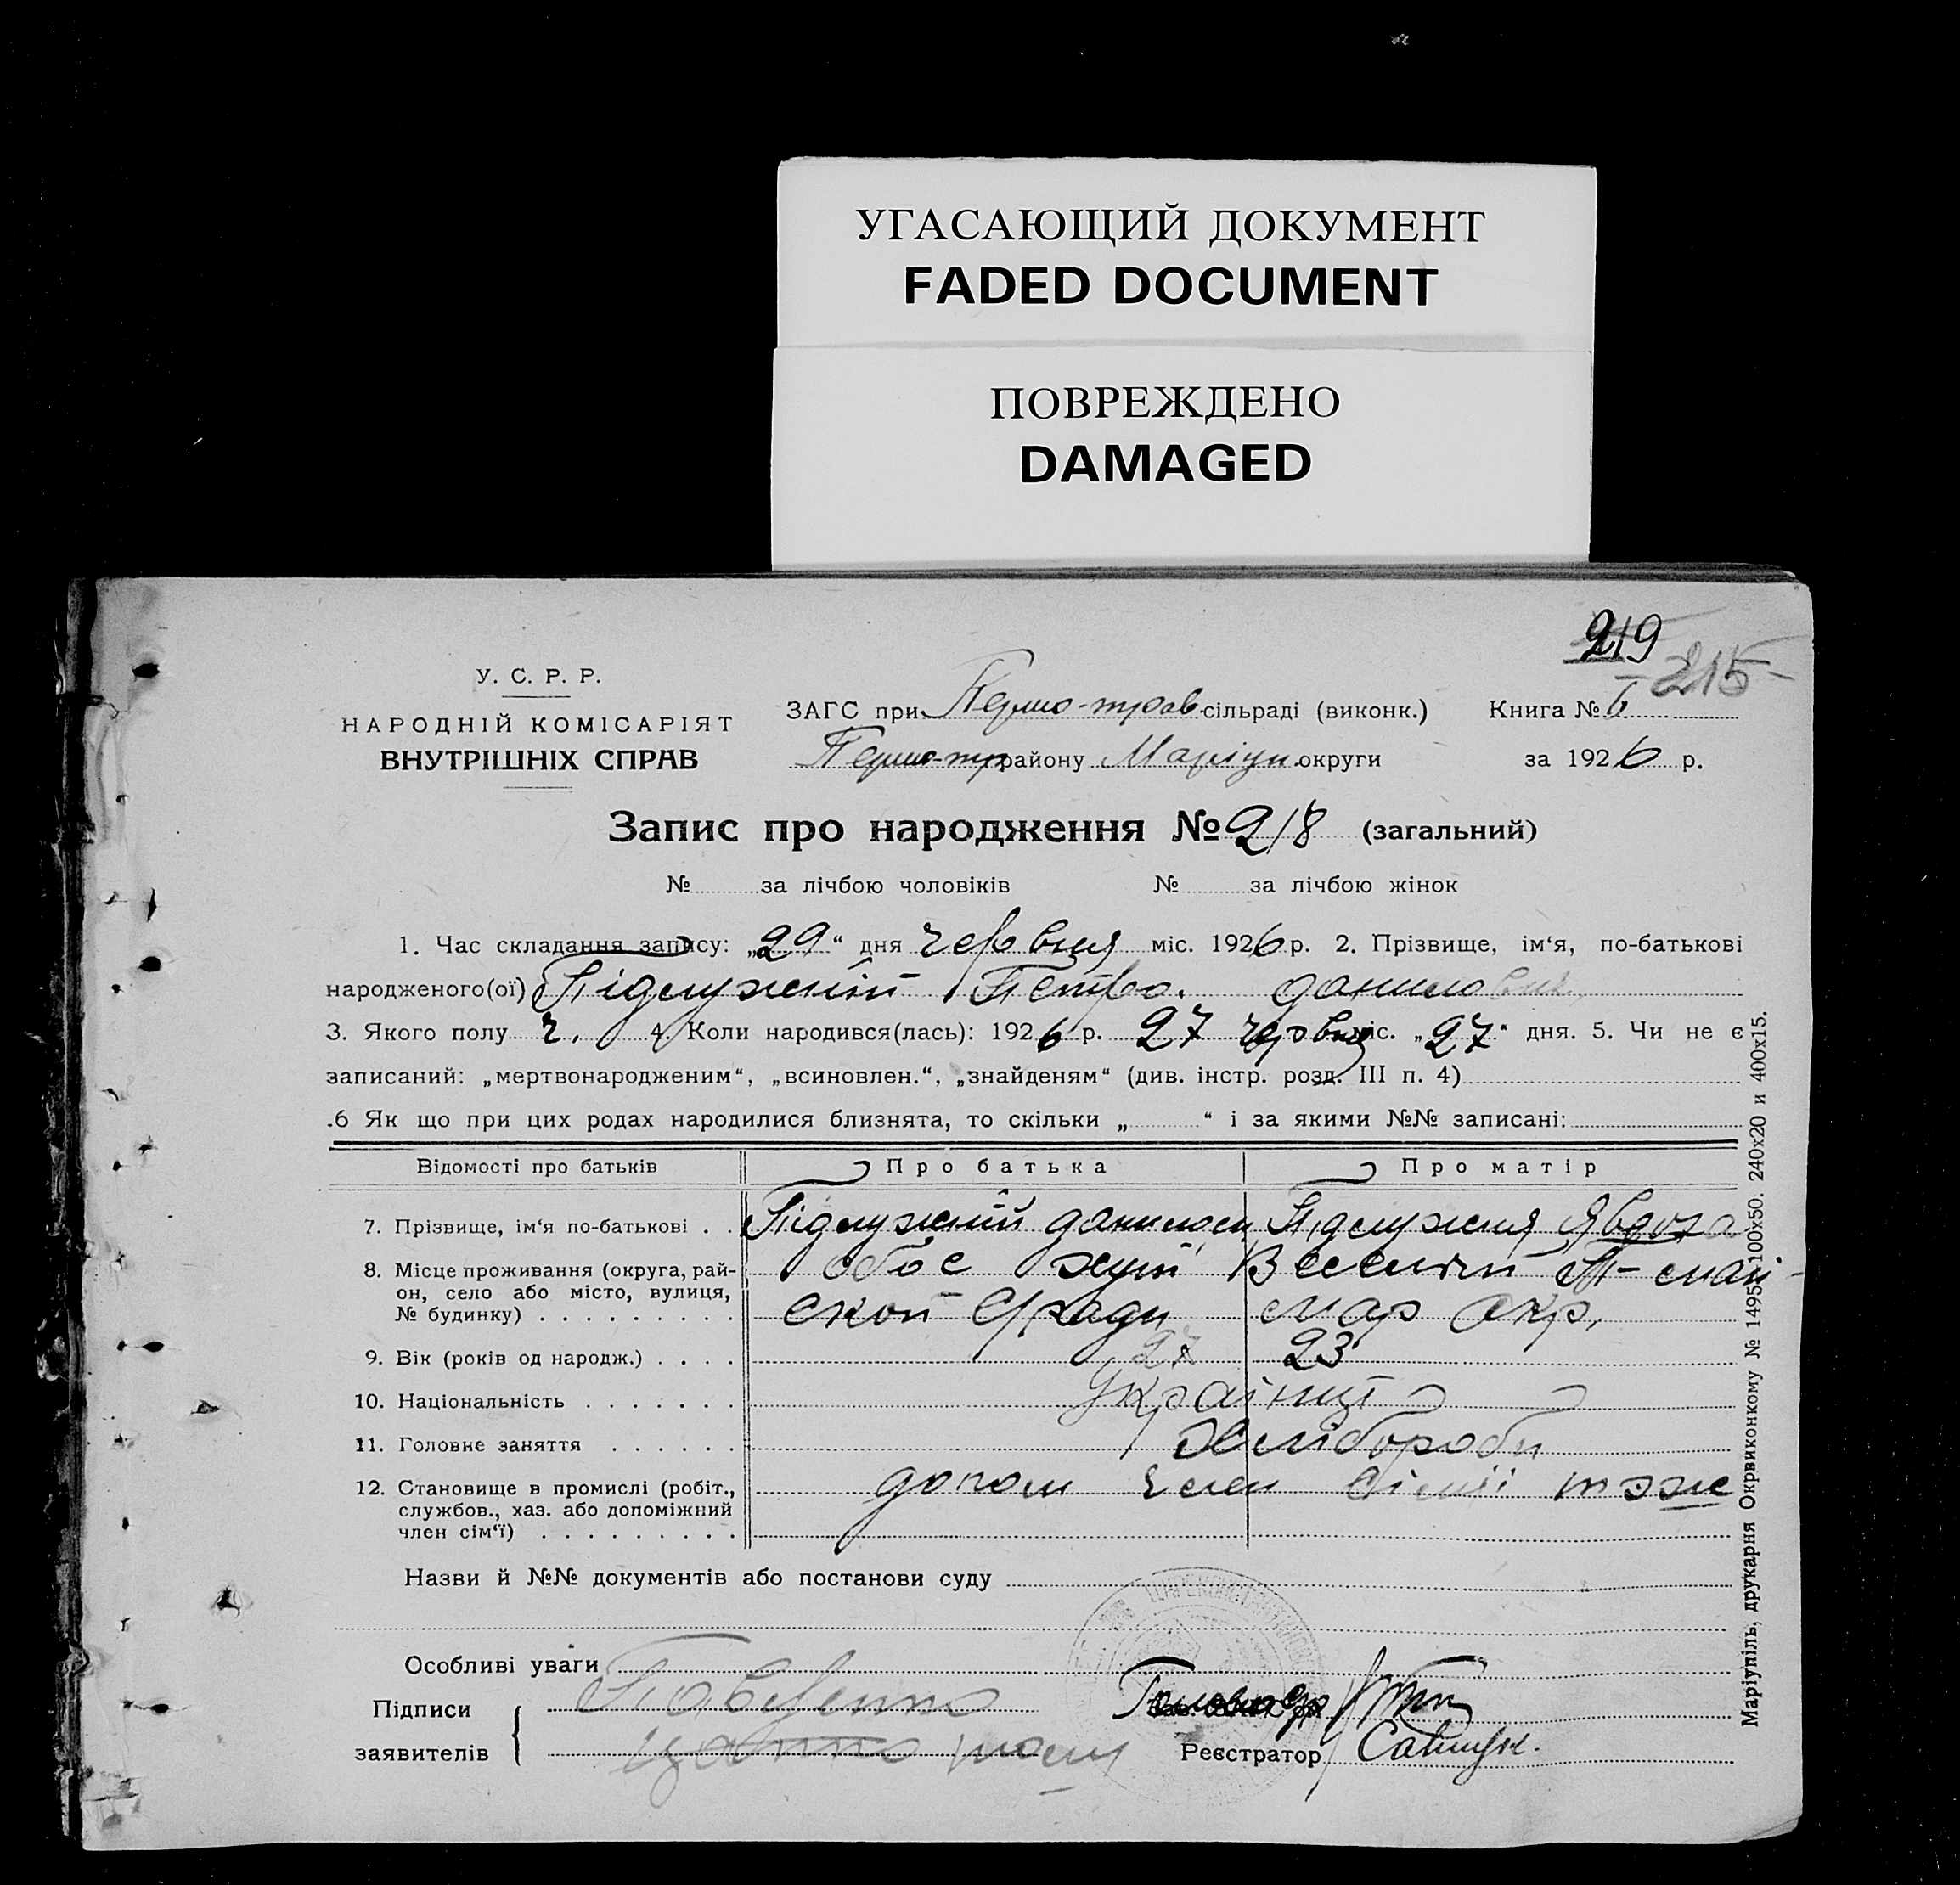 УГАСАЮЩИЙ ДОКУМЕНТ
FADED DOCUMENT
ПОВРЕЖДЕНО
DAMAGED
219
215
У. С. Р. Р.
НАРОДНІЙ КОМІСАРІЯТ
ВНУТРІШНІХ СПРАВ
ЗАГС при Першо-трав сільраді (виконк.) Книга № 6
Першо-тр району Маріуп округи за 1926 р.
Запис про народження № 218 (загальний)
№ за лічбою чоловіків № за лічбою жінок
1. Час складання запису: „29“ дня червня міс. 1926 р. 2. Прізвище, ім‘я, по-батькові
народженого(ої) Підлужній Петро. Данилович
3. Якого полу ч. 4. Коли народився(лась): 1926 р. 27 червня міс. „27“ дня. 5. Чи не є
записаний: „мертвонародженим“, „всиновлен.“, „знайденям“ (див. інстр. розд. III п. 4)
.6 Як що при цих родах народилися близнята, то скільки „ “ і за якими №№ записані:
Відомості про батьків Про батька Про матір
7. Прізвище, ім‘я по-батькові . . Підлужній Данило Підлужня Явдоха
8. Місце проживання (округа, рай-
он, село або місто, вулиця,
№ будинку) . . . . . . . . .
обоє хут.
ской С/ради мар окр,
9. Вік (років од народж.) . . . . 27 23
10. Національність . . . . . . . Українці
11. Головне заняття . . . . . . Хлібороби
12. Становище в промислі (робіт., допом член сім'ї тэже
службов., хаз. або допоміжний
член сім‘ї) . . . . . . . . .
Назви й №№ документів або постанови суду
Особливі уваги
Підписи
заявителів
Голова с/р
Реєстратор
Маріупіль, друкарня Окрвиконкому № 1495-100х50. 240х20 и 400х15.